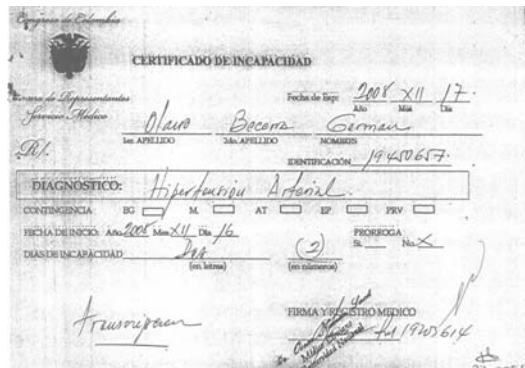 Congreso de Colombia
CERTIFICADO DE INCAPACIDAD
Cámara de Representantes
Servicio Médico
Fecha de Exp: 2008 XII 17.
Año Mes Dia
Olano Becerra German
1er. APELLIDO 2do. APELLIDO NOMBRES
R/.
IDENTIFICACIÓN 19450657.
DIAGNOSTICO: Hipertension Arterial.
CONTINGENCIA EG M. AT EP PRV
FECHA DE INICIO: Año 2008 Mes XII Dia 16
PRORROGA
DIAS DE INCAPACIDAD Dos (2) Si. No. X
(en letras) (en números)
Transcripcion
FIRMA Y REGISTRO MEDICO
19203614
Nacional